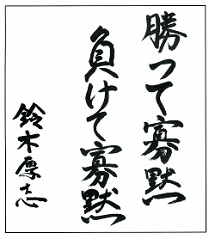 勝って寡黙
負けて寡黙
鈴木厚志